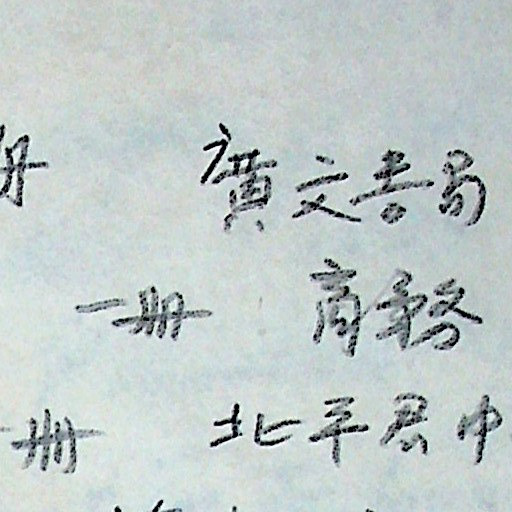 册 廣文書局
一册 商務
一册 北平君中